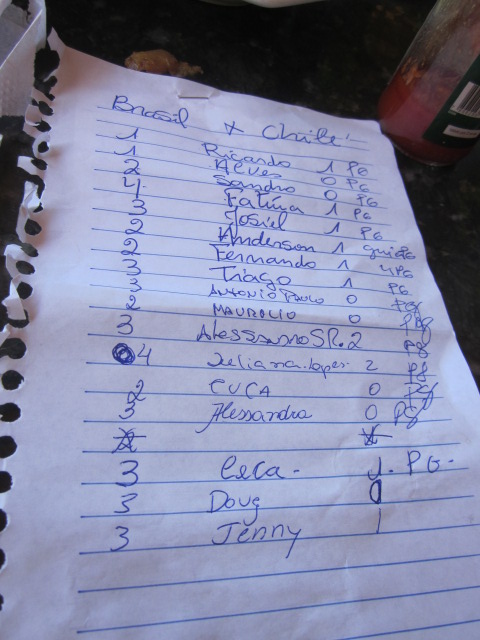 Brasil x Chile
1 Ricardo 1 PG
1 Neves 0 PG
2 Sandro 0 PG
4 Fatima 1 PG
3 Josiel 1 PG
2 Anderson 1
2 Fernando 1 PG
3 Tiago 1 PG
3 ANTONIO PAULO 0 PG
2 MAURO 0 PG
3 Alessandro SR. 2 PG
4 Juliana.lopes 2 PG
2 CUCA 0 PG
3 Alessandra 0 PG
3 Ceca - 1 - PG -
3 Doug 0
3 Jenny 1